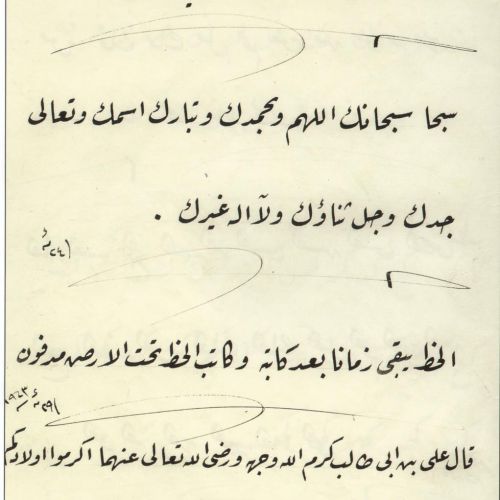 سبحا سبحانك اللهم وبحمدك وتبارك اسمك وتعالى
جدك وجل ثناؤك ولا اله غيرك .
الخط يبقى زمانا بعد كتابة وكاتب الخط تحت الارض مدفون
قال على بن ابى طالب كرم الله وجهه ورضى الله تعالى عنهما اكرموا اولادكم